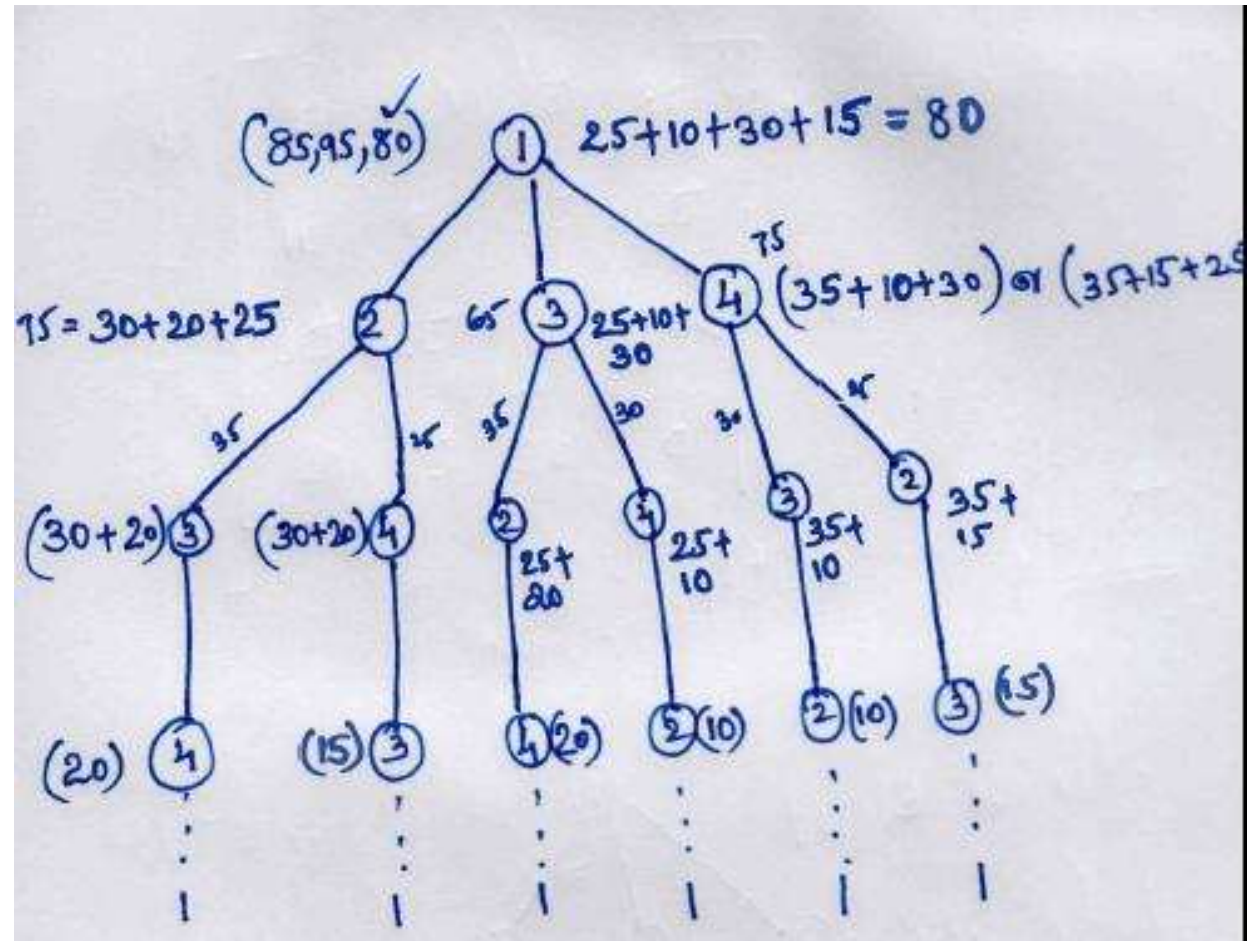 (85,95,80) ✓ 1 25+10+30+15 = 80
75
75 = 30+20+25 2 65 3 25+10+ 4 (35+10+30) or (35+15+25
30
35 25 35 30 30 25
(30+20) 3 (30+20) 4 2 4 3 2
25+ 25+ 35+ 35+
20 10 10 15
(20) 4 (15) 3 4 (20) 2 (10) 2 (10) 3 (15)
1 1 1 1 1 1